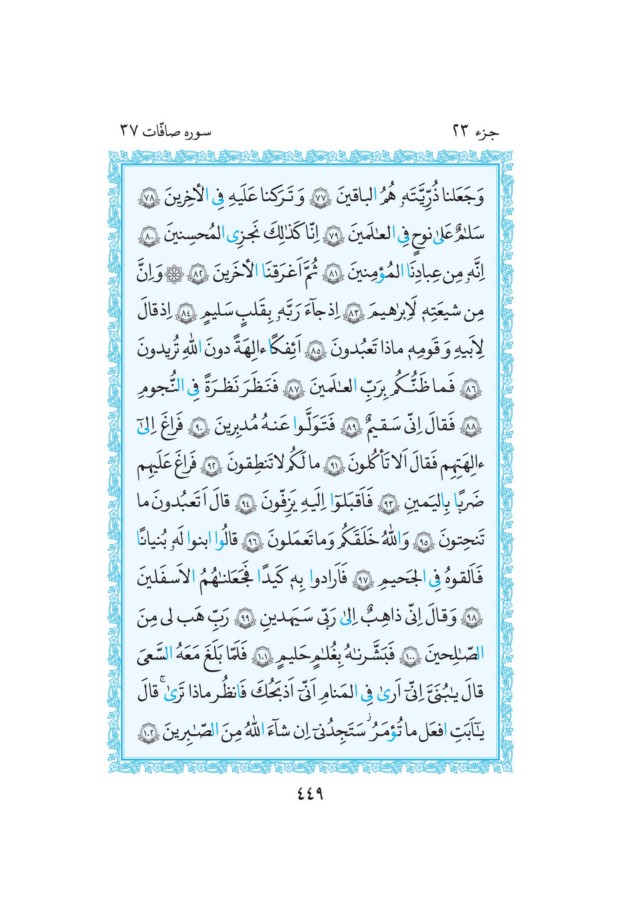 جزء ٢٣
سوره صافّات ٣٧
وَ جَعَلنا ذُرِّيَّتَهٗ هُمُ الباقينَ ٧٧ وَ تَرَكنا عَلَيهِ فِى الأخِرينَ ٧٨
سَلٰمٌ عَلىٰ نوحٍ فِى العٰلَمينَ ٧٩ اِنّا كَذٰلِكَ نَجزِى المُحسِنينَ ٨٠
اِنَّهٗ مِن عِبادِنَا المُؤمِنينَ ٨١ ثُمَّ اَغرَقنَا الأخَرينَ ٨٢ ۞ وَ اِنَّ
مِن شيعَتِهٖ لَاِبرٰهيمَ ٨٣ اِذ جآءَ رَبَّهٗ بِقَلبٍ سَليمٍ ٨٤ اِذ قالَ
لِاَبيهِ وَ قَومِهٖ ماذا تَعبُدونَ ٨٥ اَئِفكًا ءالِهَةً دونَ اللهِ تُريدونَ
٨٦ فَما ظَنُّكُم بِرَبِّ العٰلَمينَ ٨٧ فَنَظَرَ نَظرَةً فِى النُّجومِ
٨٨ فَقالَ اِنّى سَقيمٌ ٨٩ فَتَوَلَّوا عَنهُ مُدبِرينَ ٩٠ فَراغَ اِلىٰٓ
ءالِهَتِهِم فَقالَ اَلا تَأكُلونَ ٩١ ما لَكُم لا تَنطِقونَ ٩٢ فَراغَ عَلَيهِم
ضَربًا بِاليَمينِ ٩٣ فَاَقبَلوٓا اِلَيهِ يَزِفّونَ ٩٤ قالَ اَتَعبُدونَ ما
تَنحِتونَ ٩٥ وَ اللهُ خَلَقَكُم وَ ما تَعمَلونَ ٩٦ قالُوا ابنوا لَهٗ بُنيانًا
فَاَلقوهُ فِى الجَحيمِ ٩٧ فَاَرادوا بِهٖ كَيدًا فَجَعَلنٰهُمُ الاَسفَلينَ
٩٨ وَ قالَ اِنّى ذاهِبٌ اِلىٰ رَبّى سَيَهدينِ ٩٩ رَبِّ هَب لى مِنَ
الصّٰلِحينَ ١٠٠ فَبَشَّرنٰهُ بِغُلٰمٍ حَليمٍ ١٠١ فَلَمّا بَلَغَ مَعَهُ السَّعىَ
قالَ يٰبُنَىَّ اِنّى اَرىٰ فِى المَنامِ اَنّى اَذبَحُكَ فَانظُر ماذا تَرىٰ ۚ قالَ
يٰٓاَبَتِ افعَل ما تُؤمَرُ ۖ سَتَجِدُنى اِن شآءَ اللهُ مِنَ الصّٰبِرينَ ١٠٢
٤٤٩